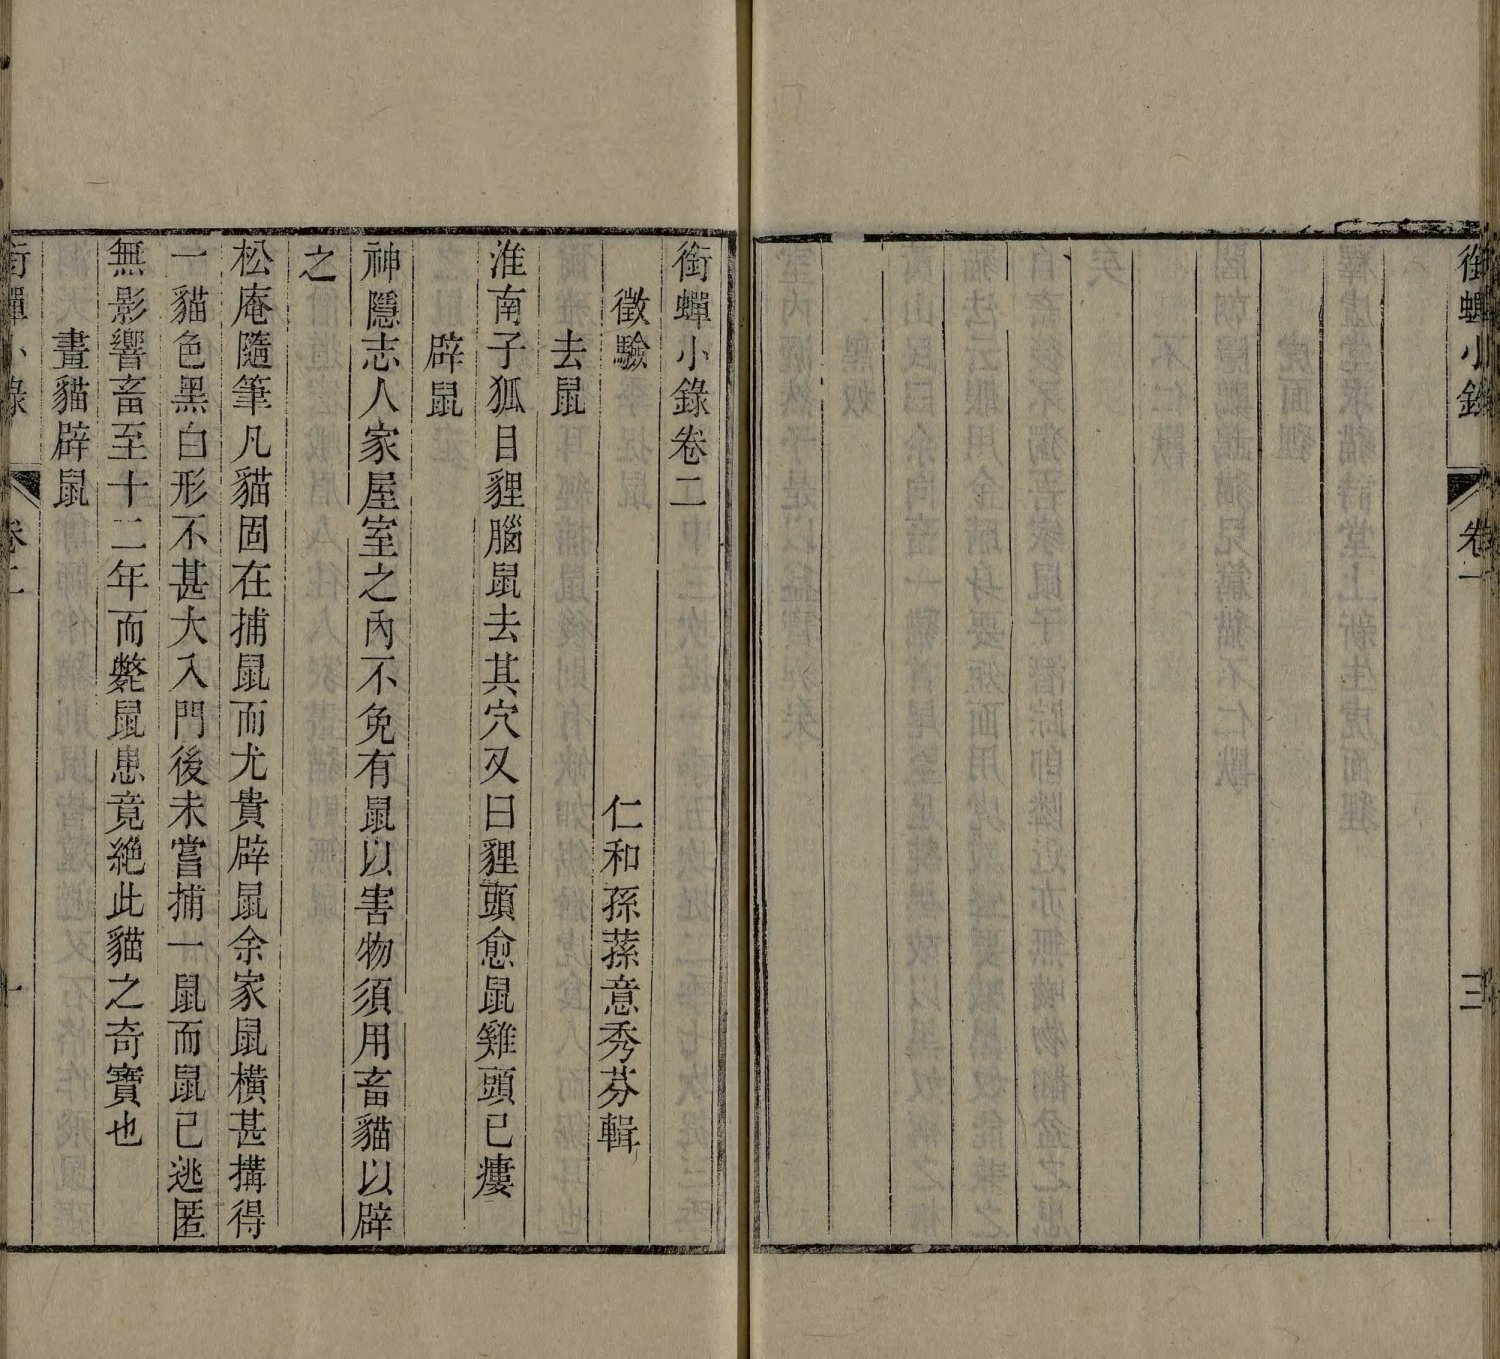 銜蟬小錄
卷一
三
銜蟬小錄卷二
徵驗
仁和孫蓀意秀芬輯
去鼠
淮南子狐目貍腦鼠去其穴又曰貍頭愈鼠雞頭已瘻
辟鼠
神隱志人家屋室之內不免有鼠以害物須用畜貓以辟
之
松庵隨筆凡貓固在捕鼠而尤貴辟鼠余家鼠橫甚搆得
一貓色黑白形不甚大入門後未嘗捕一鼠而鼠已逃匿
無影響畜至十二年而斃鼠患竟絕此貓之奇寶也
畫貓辟鼠
銜蟬小錄
卷二
一